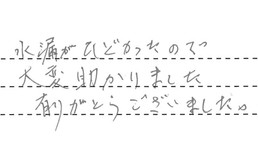 水漏がひどかったので
大変助かりました
有りがとうございました。